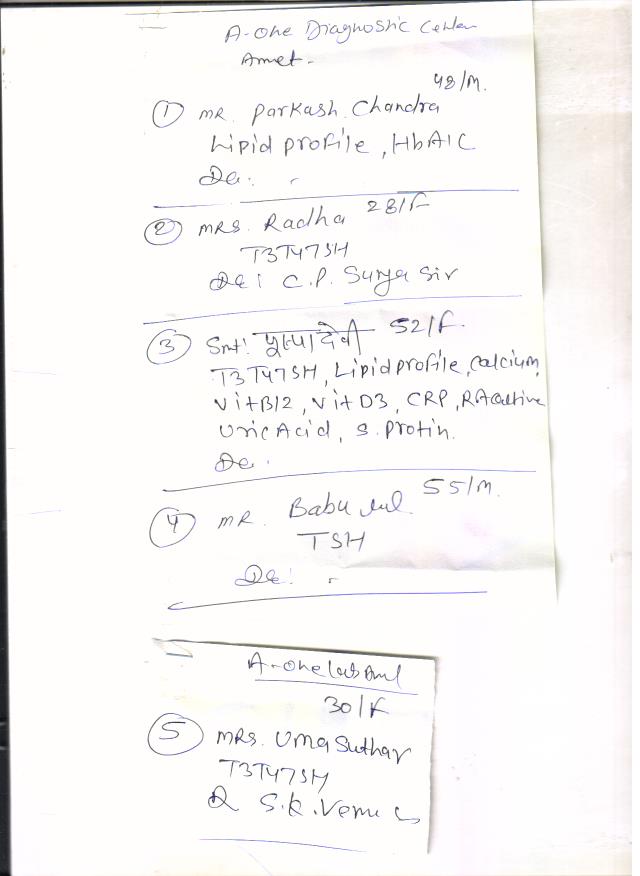 A-One Diagnostic Center
Amet-
48/M.
① MR. Parkash Chandra
Lipid profile, HbA1C
De:
② MRS. Radha 28/F
T3T4TSH
De: C.P. Surya Sir
③ Smt. पुष्पा देवी 52/F.
T3T4TSH, Lipid profile, calcium,
VitB12, VitD3, CRP, RA
Uric Acid, S. Protin.
De.
④ MR. Babu Lal 55/M.
TSH
De:
A-One Lab
30/F
⑤ MRS. Uma Suthar
T3T4TSH
S.K.